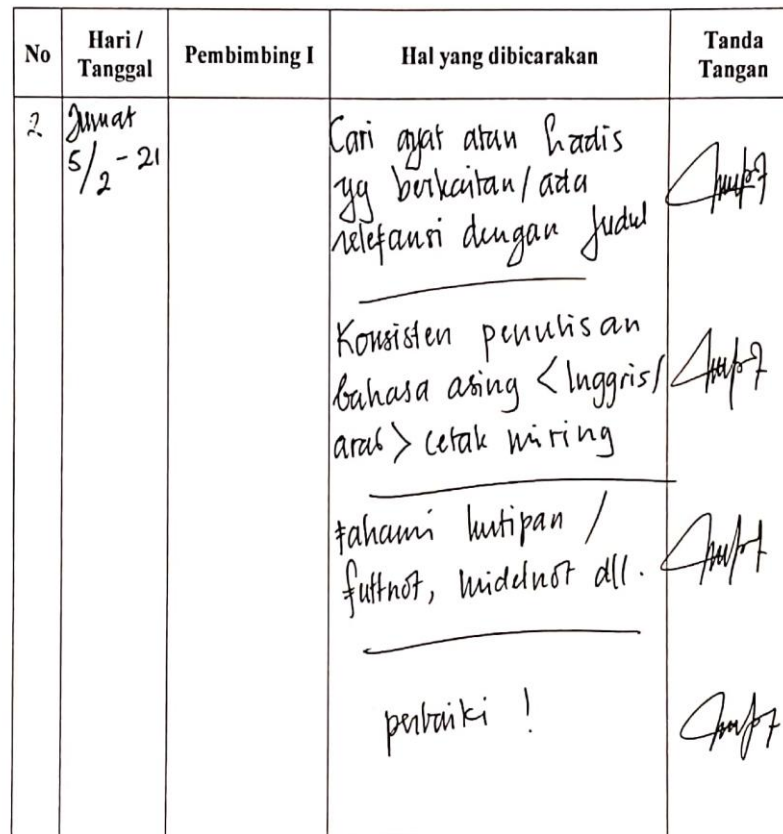 No Hari / Tanggal Pembimbing I Hal yang dibicarakan Tanda Tangan
2 Jumat
5/2-21
Cari ayat atau hadis
yg berkaitan/ada
relefansi dengan judul
Konsisten penulisan
bahasa asing <Inggris/
arab> cetak miring
fahami kutipan /
futtnot, midelnot dll.
perbaiki !